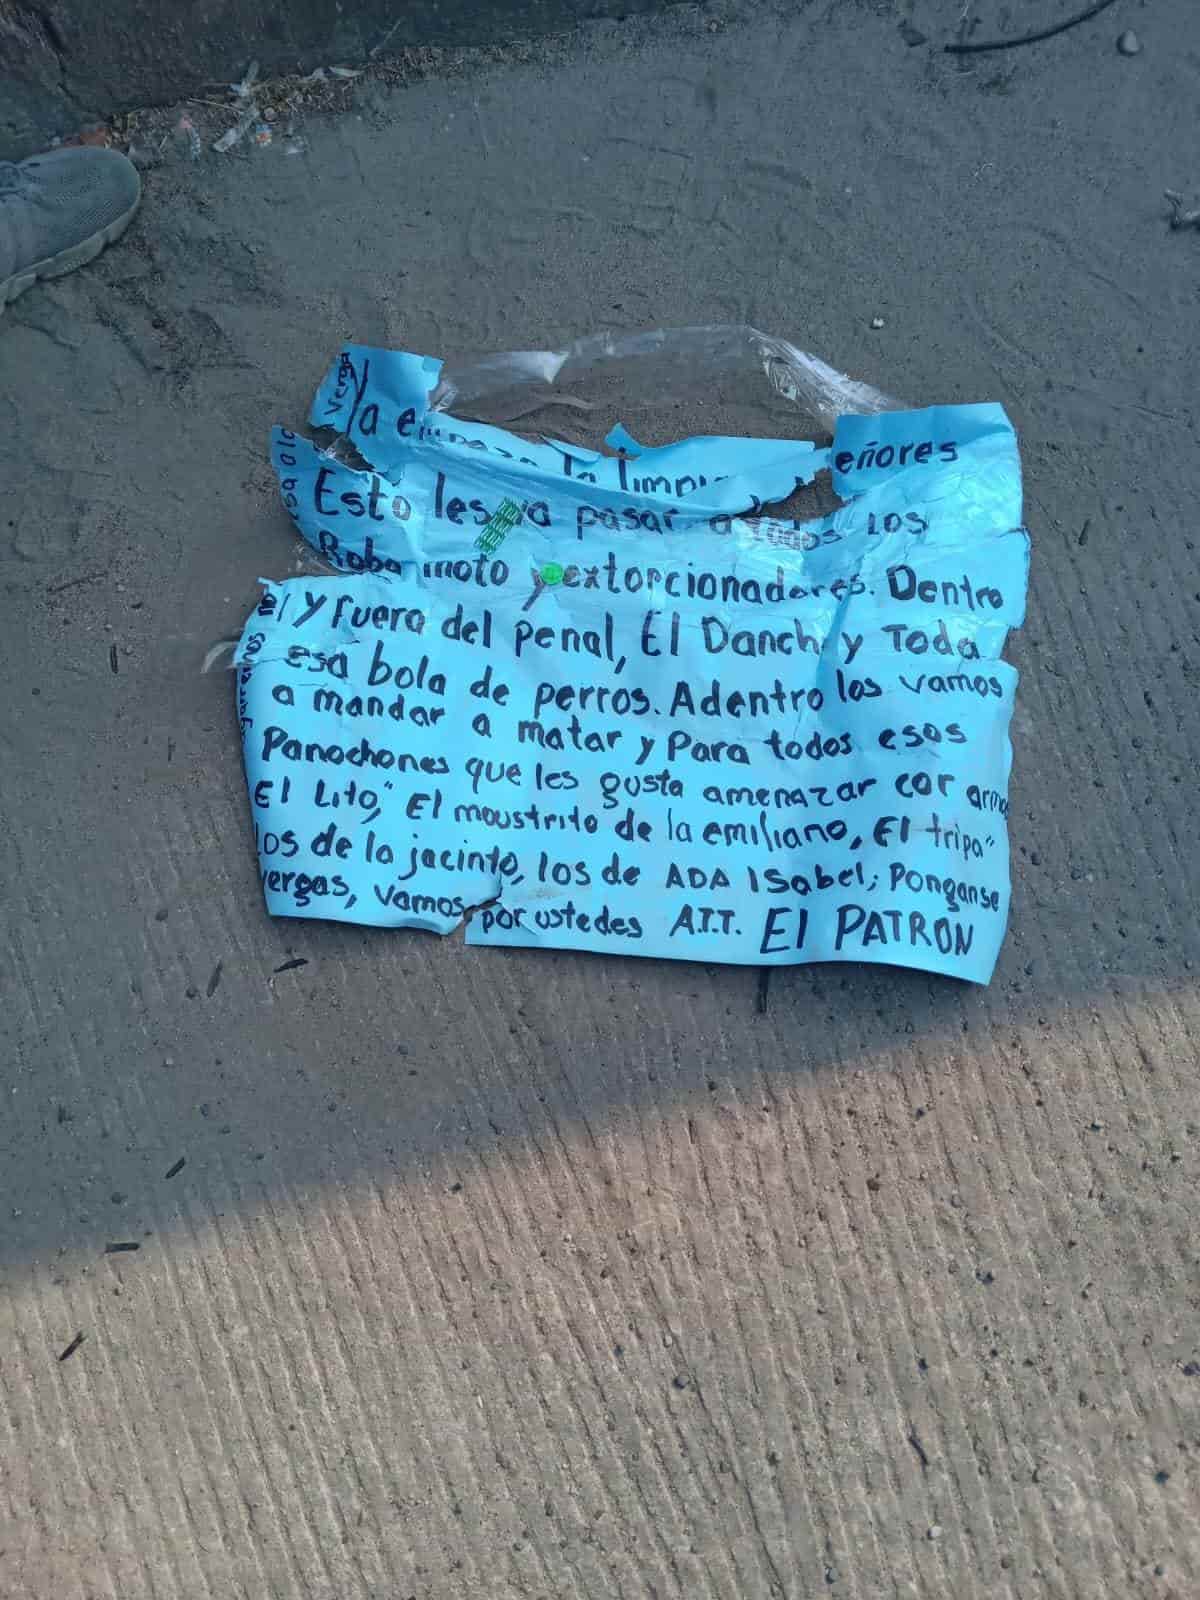 Ya empezo la limpia señores
Esto les va pasar a todos los
Roba moto y extorcionadores. Dentro
y fuera del penal, El Danch y Toda
esa bola de perros. Adentro los vamos
a mandar a matar y Para todos esos
Panochones que les gusta amenazar cor arma
El Lito," El moustrito de la emiliano, El tripa"
los de la jacinto, los de ADA ISabel; Ponganse
vergas, vamos por ustedes A.T.T. El PATRON
verga